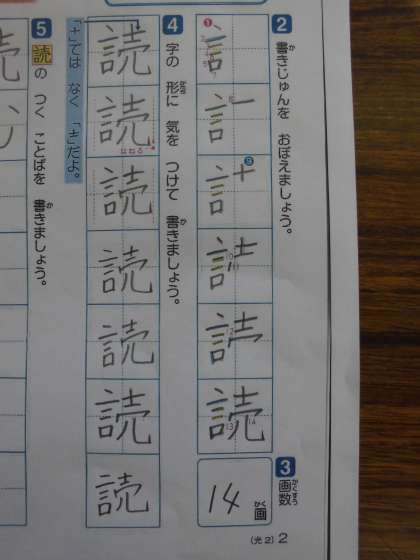 2 書きじゅんを おぼえましょう。
3 画数
14 画
4 字の 形に 気を つけて 書きましょう。
読
読
はねる
読
読
読
読
読
「土」では なく 「士」だよ。
5 読の つく ことばを 書きましょう。
(光2) 2